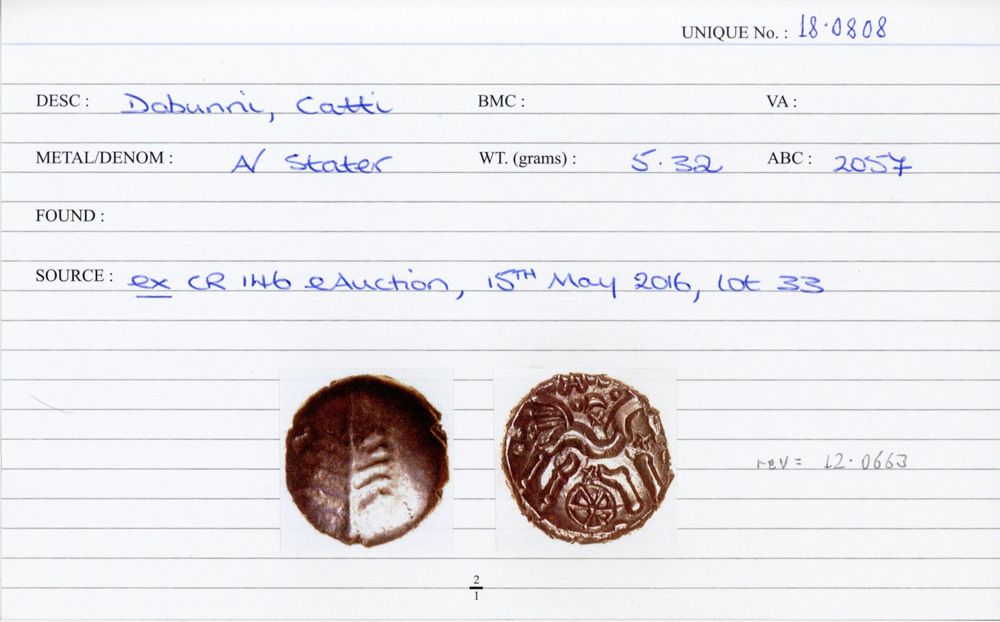 UNIQUE No. : 18·0808
DESC : Dobunni, Catti BMC : VA :
METAL/DENOM : A/ Stater WT. (grams) : 5.32 ABC : 2057
FOUND :
SOURCE : ex CR 146 eAuction, 15TH May 2016, lot 33
rev = 12·0663
2
1